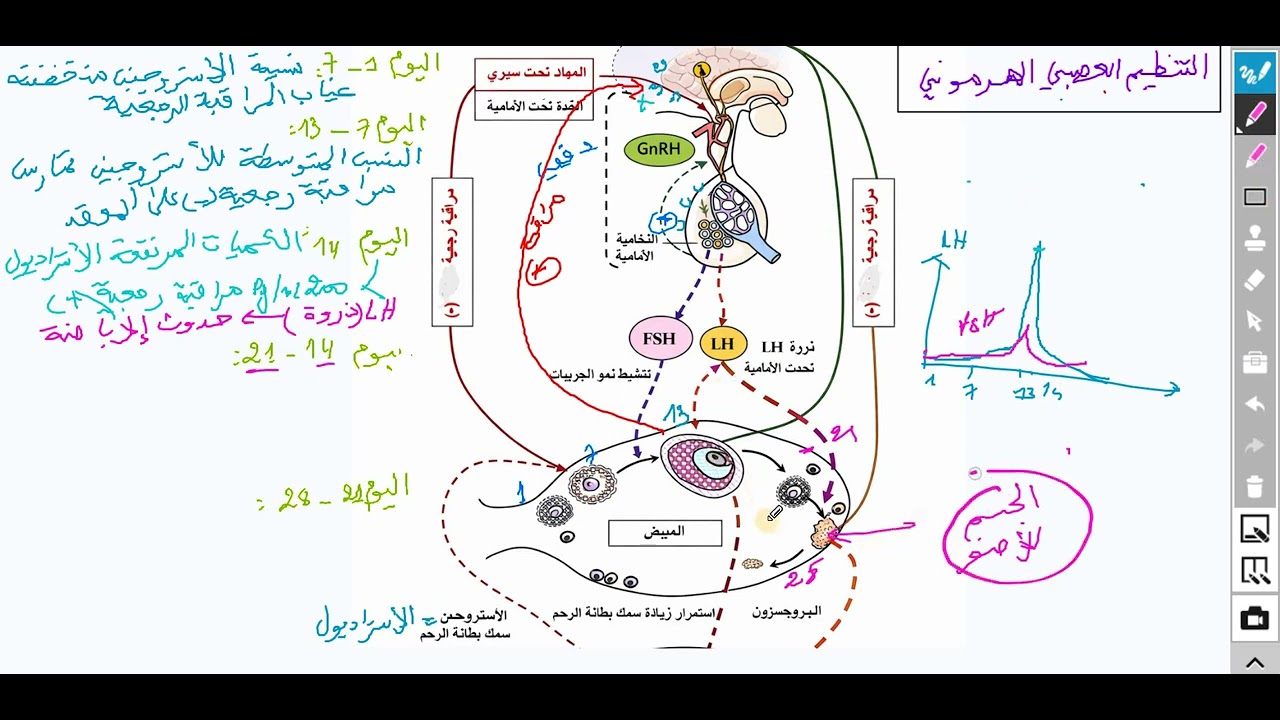 التنظيم العصبي الهرموني
اليوم 1 – 7: نسبة الأستروجين منخفضة
غياب المراقبة الرجعية
اليوم 7 – 13:
النسب المتوسطة للأستروجين تمارس
مراقبة رجعية (-) على المعقد
اليوم 14: الكميات المرتفعة الأستراديول
> 200 pg/ml مراقبة رجعية (+)
LH (ذروة) ← حدوث الإباضة
يوم 14 – 21:
اليوم 21 – 28 :
الأستراديول =
المهاد تحت سيري
الغدة تحت الأمامية
GnRH
مراقبة رجعية (-)
مراقبة رجعية
مرتفع
+
+
النخامية
الأمامية
FSH
LH
نررة LH
تحدت الأمامية
تتشيط نمو الجريبات
1
7
13
21
28
المبيض
الأستروجين
سمك بطانة الرحم
استمرار زيادة سمك بطانة الرحم
البروجسزون
LH
FSH
1
7
13
14
الجسم
الأصفر